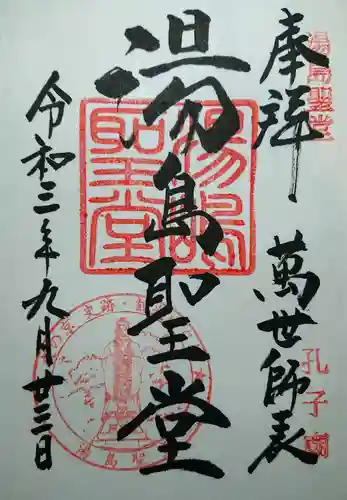 奉拝
湯島聖堂
萬世師表
孔子
湯島聖堂
湯島聖堂
令和三年九月廿三日
史跡
湯島聖堂